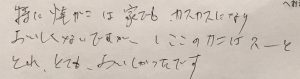 特に焼がには家でも カスカスになり
おいしくないですが、ここのカニはスーと
とれ、とても、おいしかったです